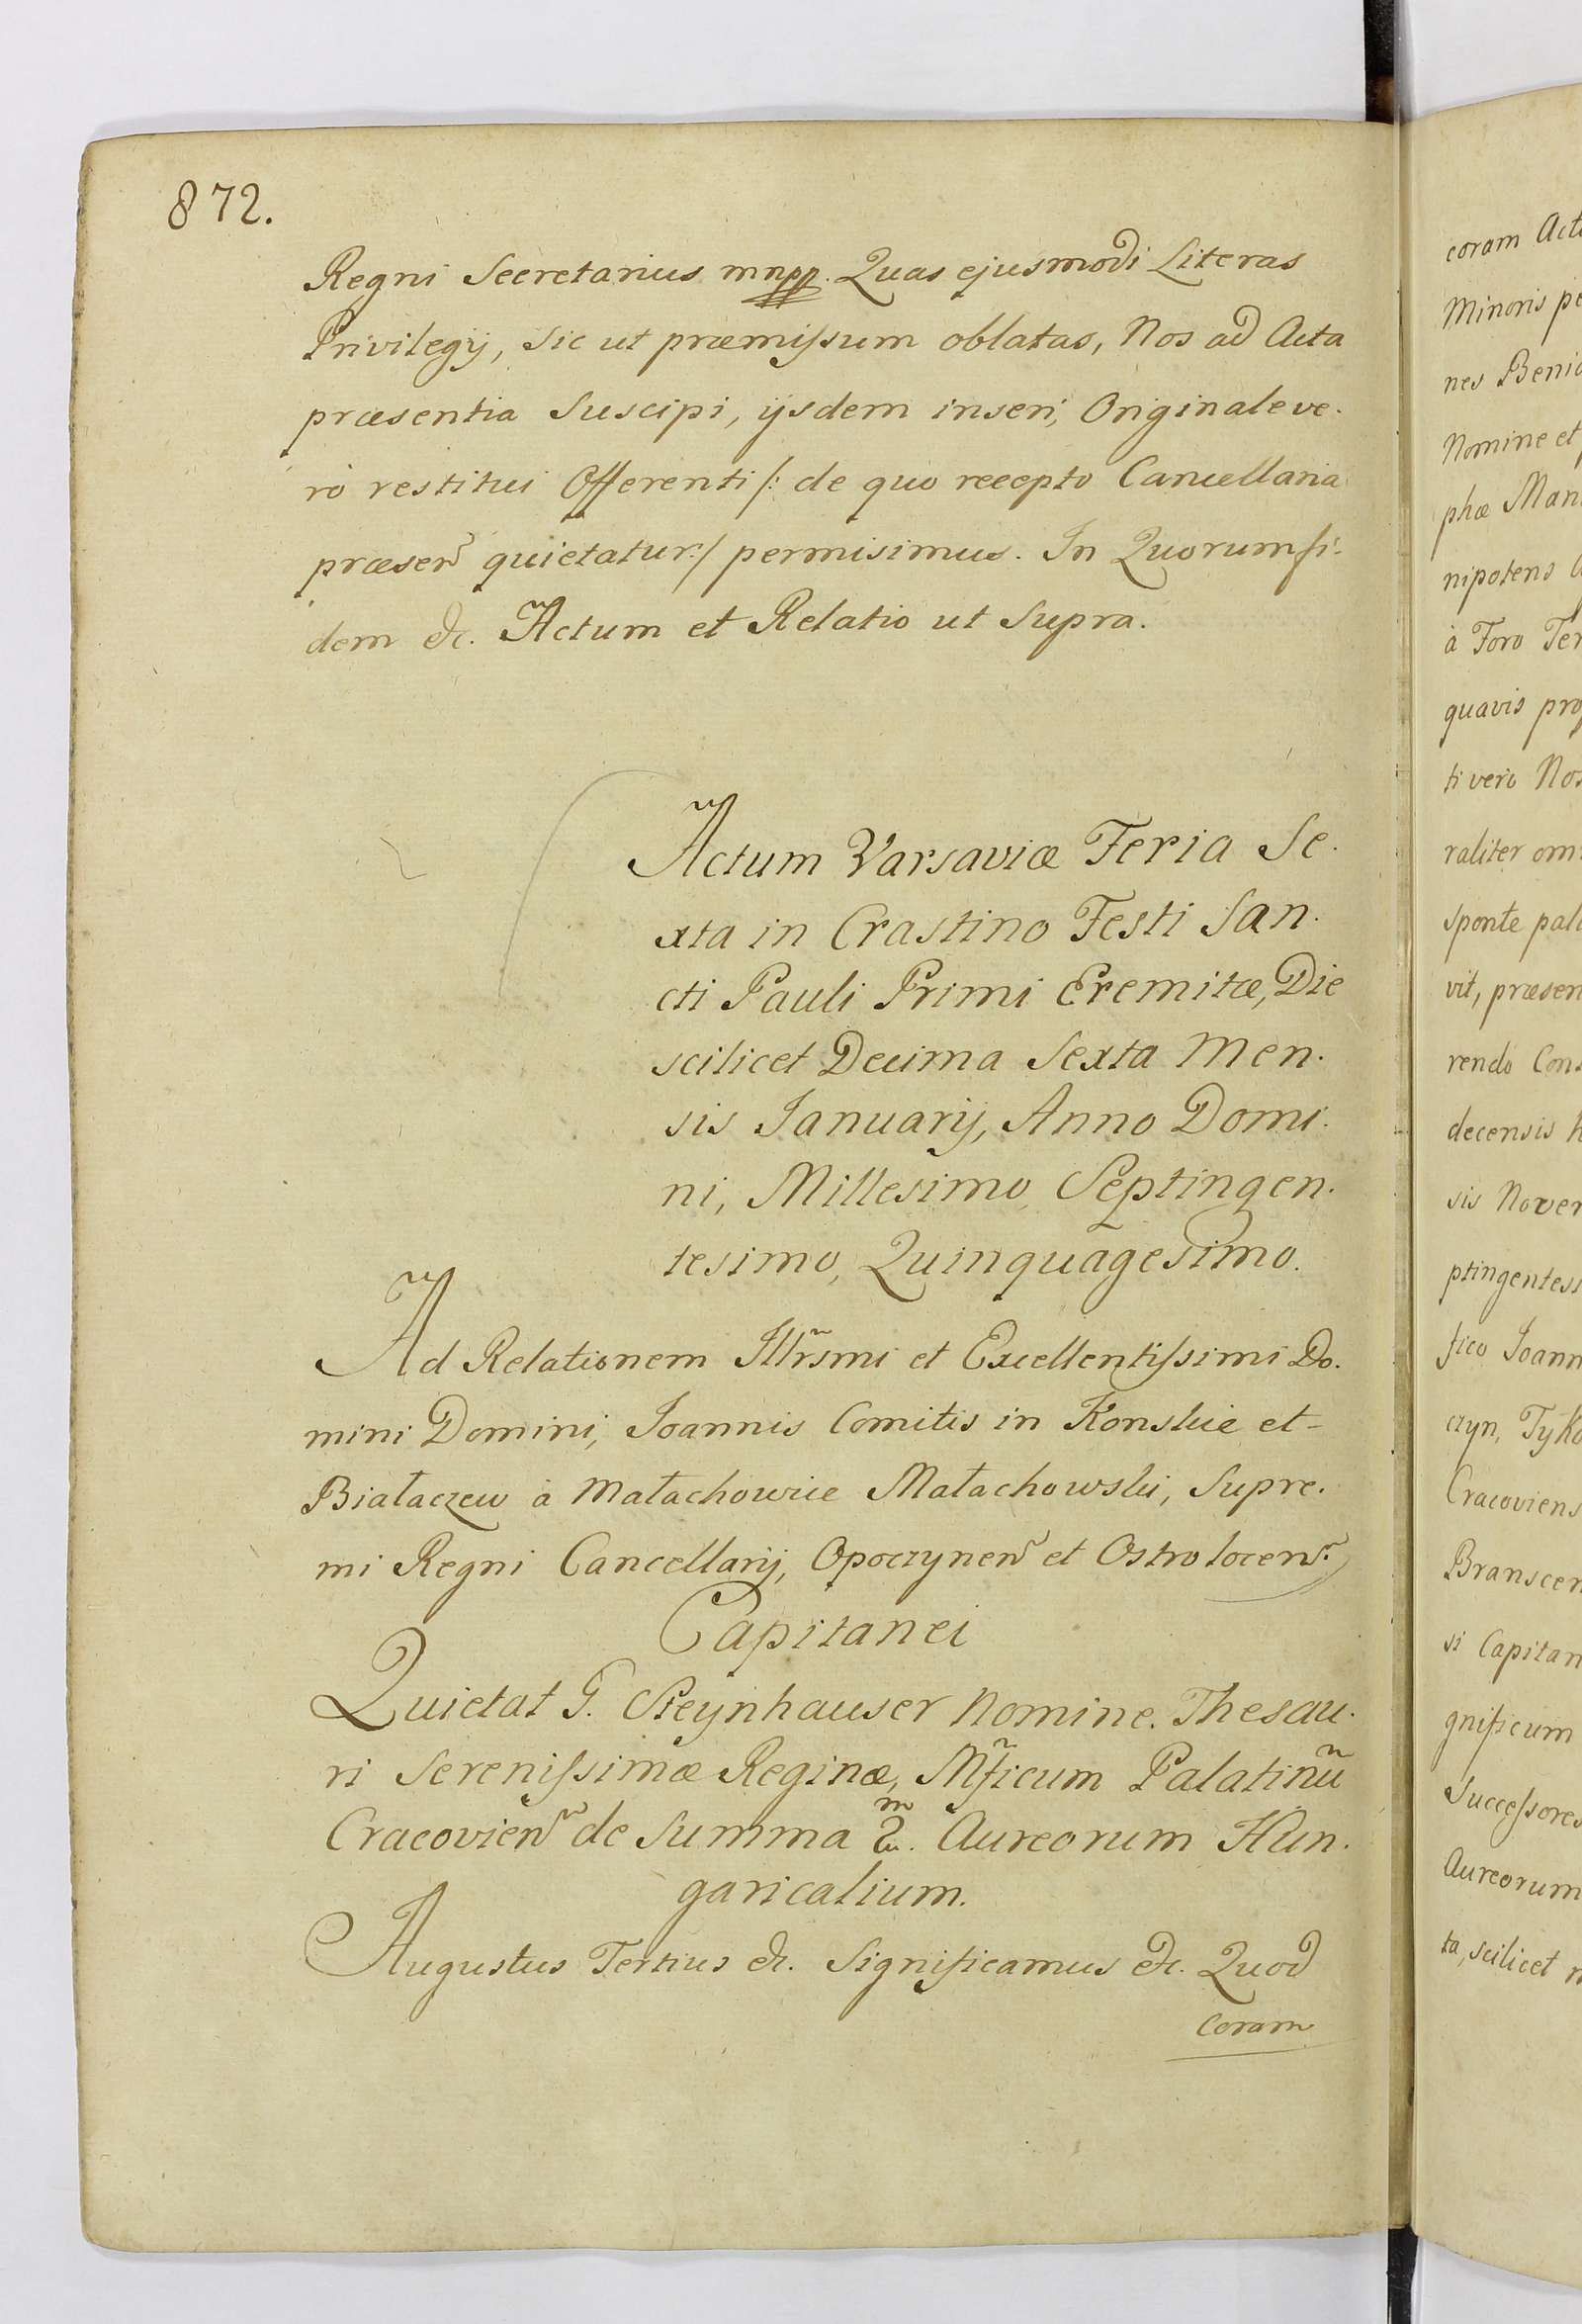 872.
Regni Secretarius mnpp. Quas ejusmodi Literas
Privilegij, sic ut præmissum oblatas, Nos ad Acta
præsentia Suscipi, ijsdem inseri, Originale ve.
rò restitui Offerenti /: de quo recepto Cancellaria
præsen̄ quietatur :/ permisimus. In Quorum fi.
dem &c. Actum et Relatio ut Supra.
Actum Varsaviæ Feria Se.
xta in Crastino Festi San.
cti Pauli Primi Eremitæ, Die
scilicet Decima Sexta Men.
sis Januarij, Anno Domi.
ni, Millesimo, Septingen.
tesimo, Quinquagesimo.
Ad Relationem Illr̄smi et Excellentissimi Do.
mini Domini, Joannis Comitis in Konskie et
Białaczew à Małachowice Małachowski, Supre.
mi Regni Cancellarij, Opoczynen̄ et Ostrolocen̄.
Capitanei
Quietat G. Steynhauser Nomine Thesau.
ri Serenissimæ Reginæ, Mf̄icum Palatinū
Cracovien̄ de Summa 2m. Aureorum Hun.
garicalium.
Augustus Tertius &c. Significamus &c. Quod
Coram
coram Act
Minoris pe
nes Beni
Nomine et
phæ Man
nipotens
à Foro Ter
quavis pro
ti verò Nos
raliter om
sponte pal
vit, præsen
rendo Cons
decensis
sis Nover
ptingentesi
fico Joann
czyn, Tyko
Cracoviens
Branscen
si Capitan
gnificum
Successores
Aureorum
ta, scilicet